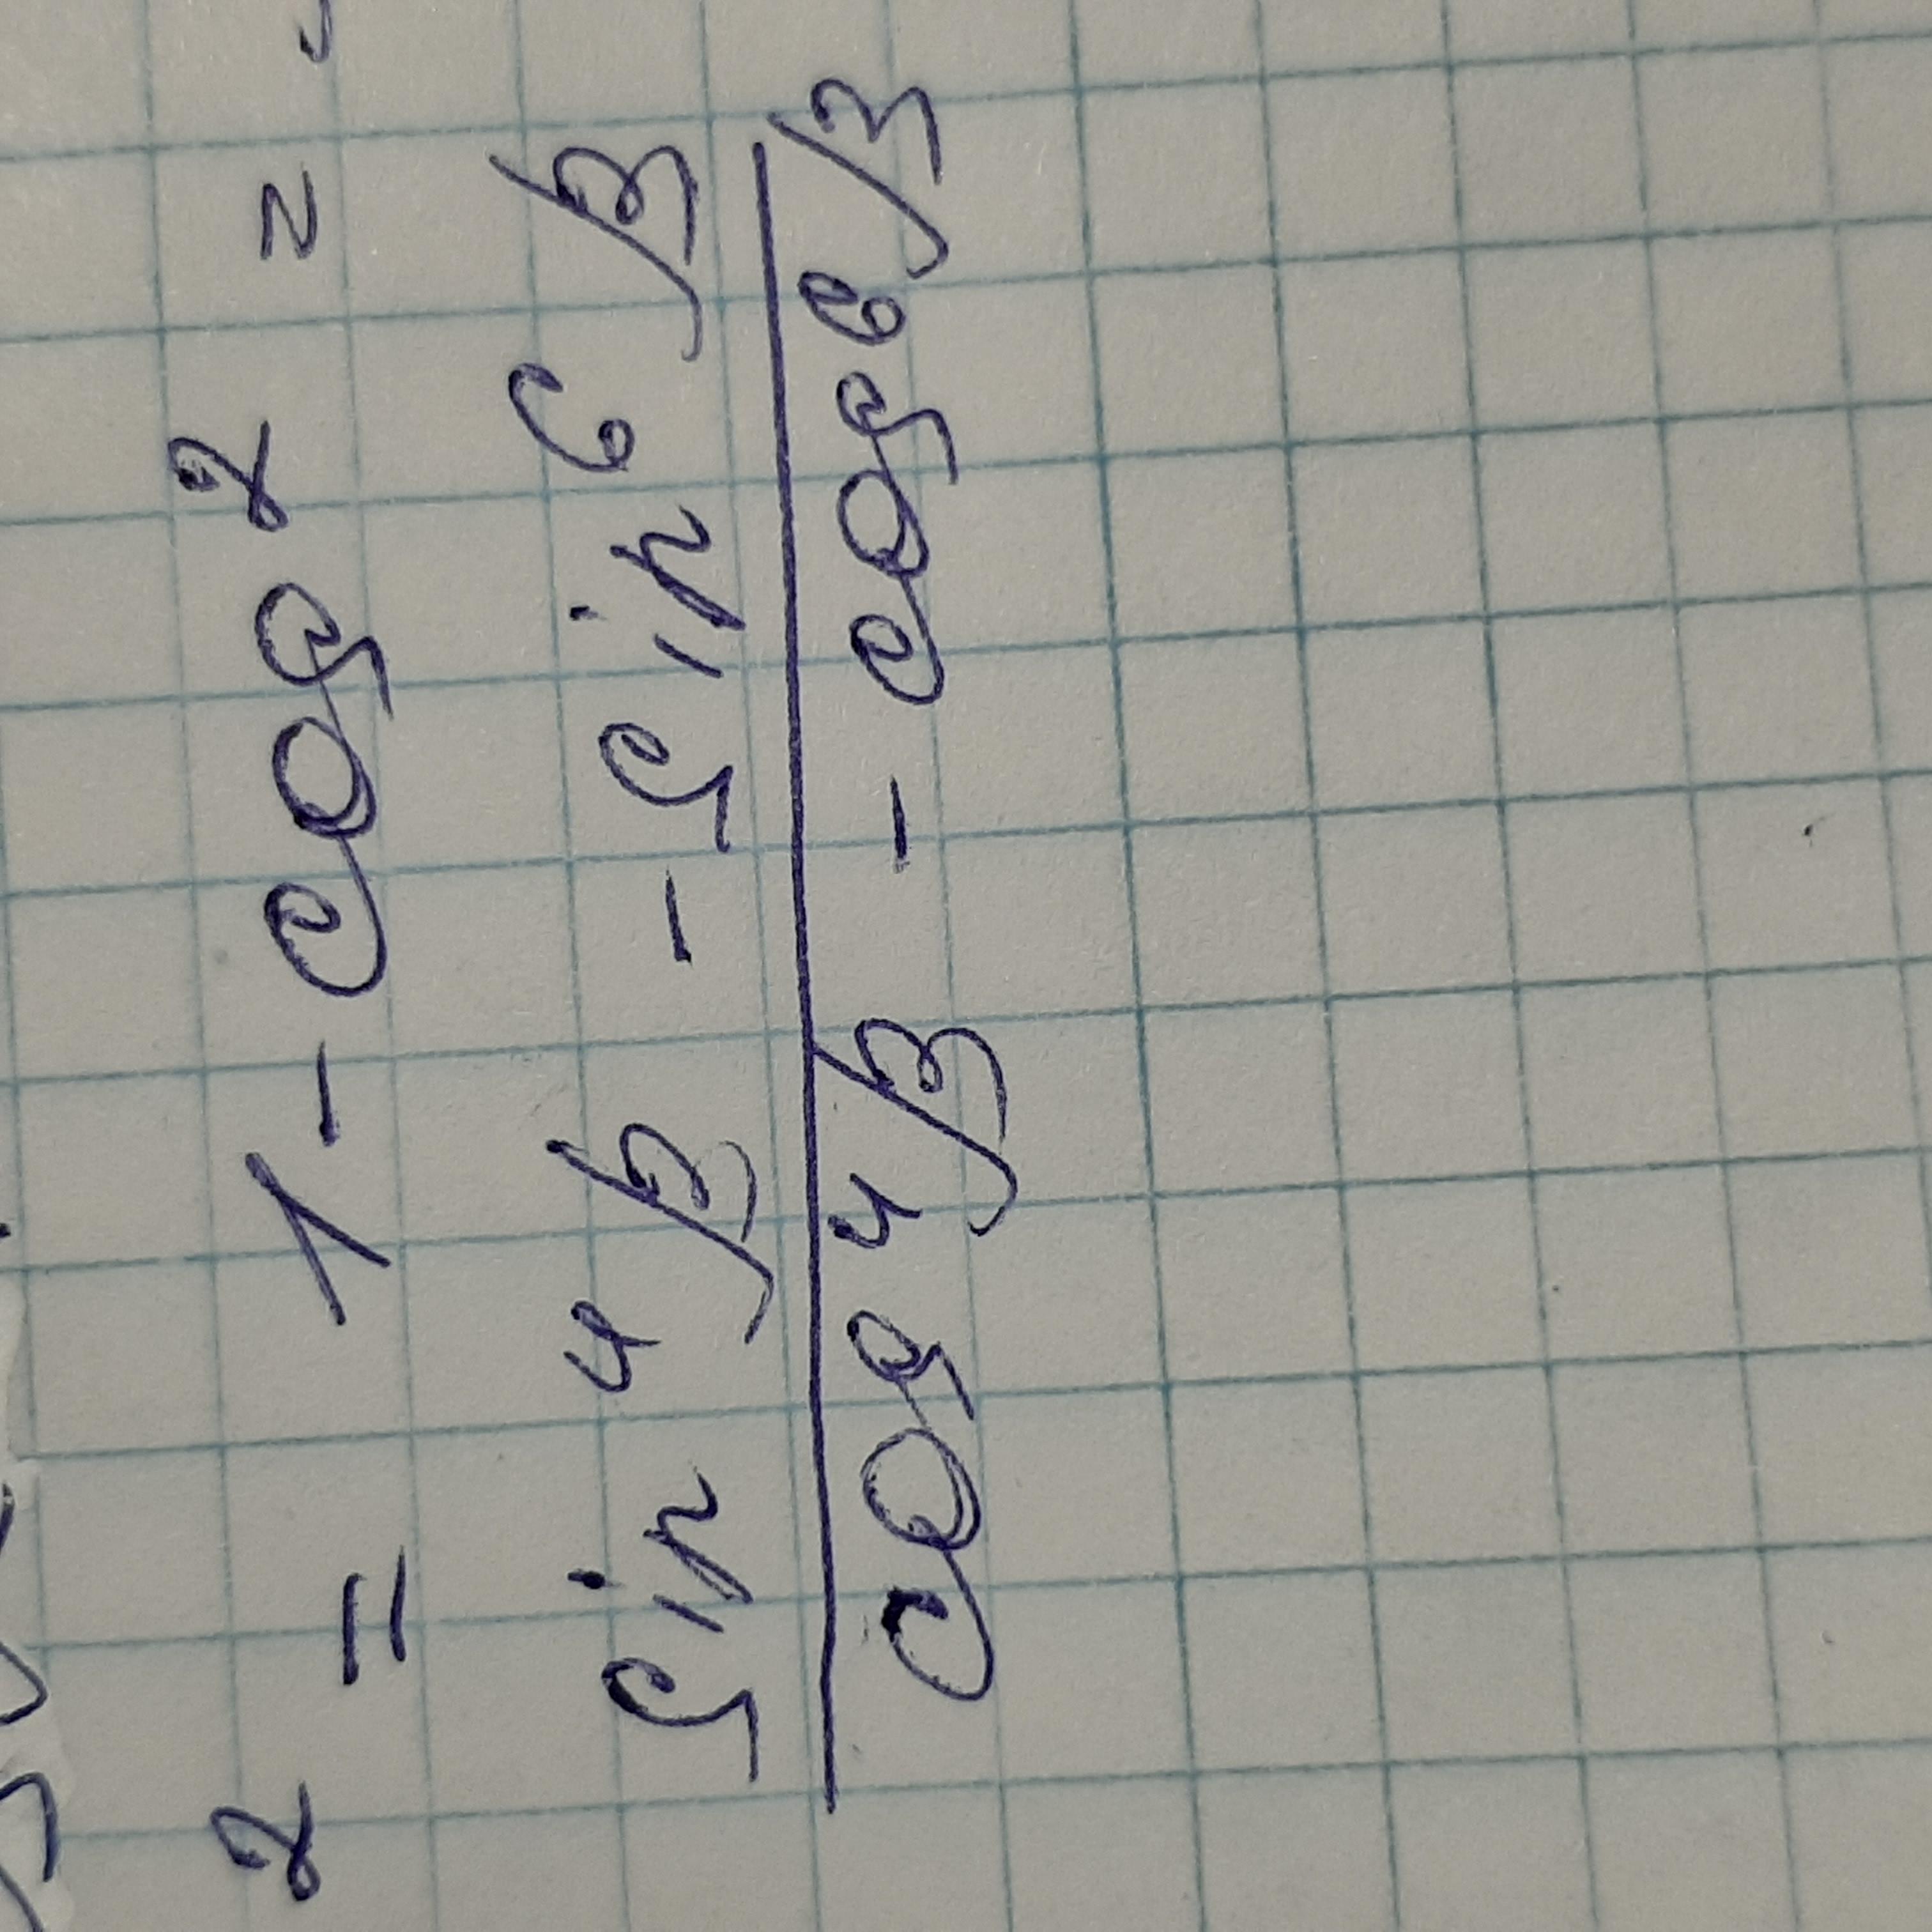 2 = 1 - cos 2 =
sin⁴β - sin⁶β
cos⁴β - cos⁶β